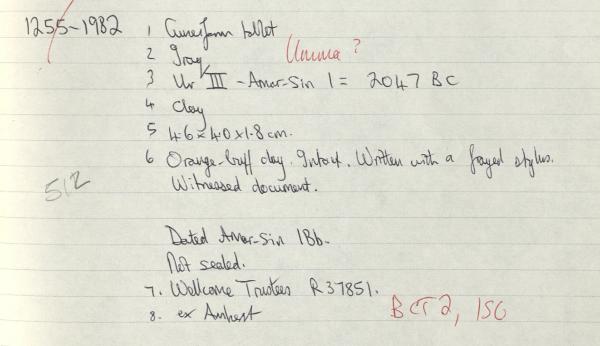 1255-1982
1 Cuneiform tablet
2 Iraq Umma ?
3 Ur III - Amar-Sin 1 = 2047 BC
4 Clay
5 4.6 x 4.0 x 1.8 cm.
6 Orange-buff clay. Intact. Written with a frayed stylus.
Witnessed document.
512
Dated Amar-Sin 1Bb.
Not sealed.
7. Wellcome Trustees R37851.
8. ex Amherst
BCT 2, 156